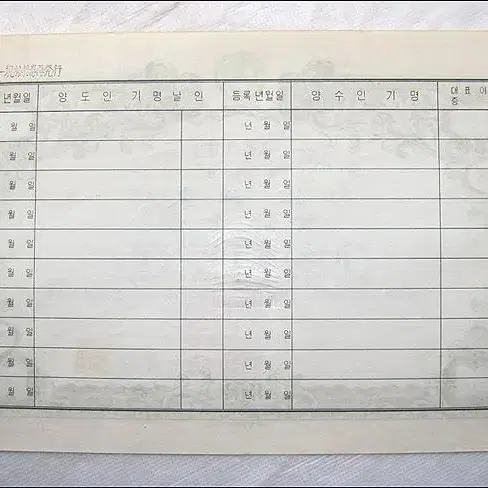 년월일 양도인기명날인 등록년월일 양수인기명 대표이
월 일 년 월 일
월 일 년 월 일
월 일 년 월 일
월 일 년 월 일
월 일 년 월 일
월 일 년 월 일
월 일 년 월 일
월 일 년 월 일
월 일 년 월 일
월 일 년 월 일